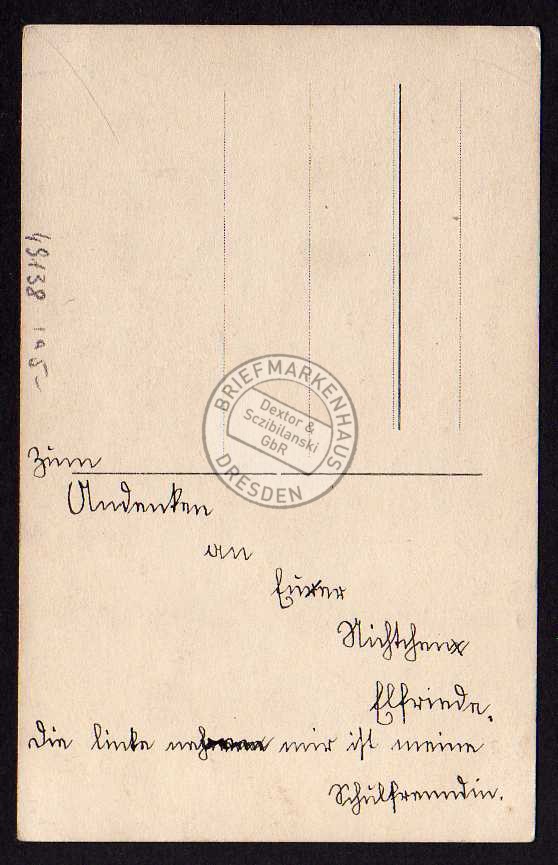 49138 195-
BRIEFMARKENHAUS
Dextor &
Sczibilanski
GbR
DRESDEN
Zum
Andenken
an
Eurer
Nichtchen
Elfriede.
Die linke neben mir ist meine
Schulfreundin.